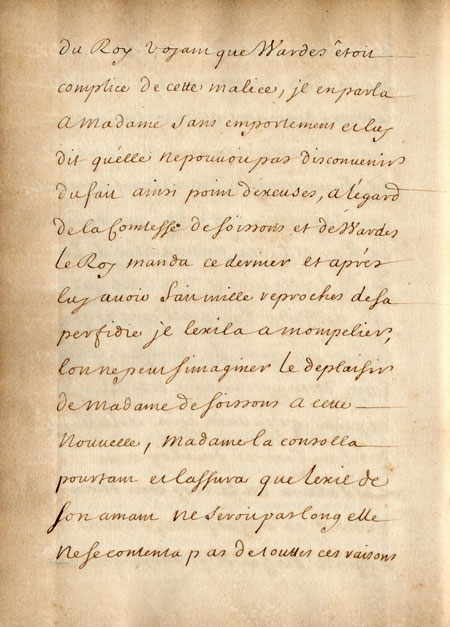 du Roy voyant que Wardes êtoit
complice de cette malice, il en parla
a Madame sans emportement et luy
dit qu'elle ne pouvoit pas disconvenir
du fait ainsi point d'excuses, a l'égard
de la Comtesse de soissons et de Wardes
le Roy manda ce dernier et aprés
luy avoir fait mille reproches de sa
perfidie il l'exila a mompelier,
lon ne peut simaginer le deplaisir
de Madame de soissons a cette
Nouvelle, Madame la consolla
pourtant et lassura que lexil de
son amant ne seroit pas long elle
ne se contenta pas de touttes ces raisons